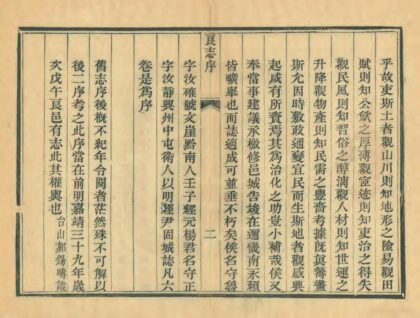 乎故吏斯土者觀山川則知地形之險易觀田
賦則知公歛之厚薄觀宦達則知吏治之得失
觀民風則知習俗之醇漓觀人材則知世運之
升降觀物產則知民需之豐嗇考據旣眞籌畫
斯允因時敷政通變宜民而生斯地者觀感興
起咸有所資焉其爲治化之助豈小補哉侯又
奉當事建議承檄修邑城告竣在運臺南永賴
皆曠舉也而誌適成可並垂不朽矣侯名守魯
字汝確號文崖黔南人壬子經元楊君名守正
字汝靜興州中屯衛人以明經尹固城誌凡六
卷是爲序
舊志序後槪不紀年令閱者茫然殊不可解以
後二序考之此序當在前明嘉靖三十九年歲
次戊午良邑有志此其權輿也 台山郝錫疇識
良志序
二